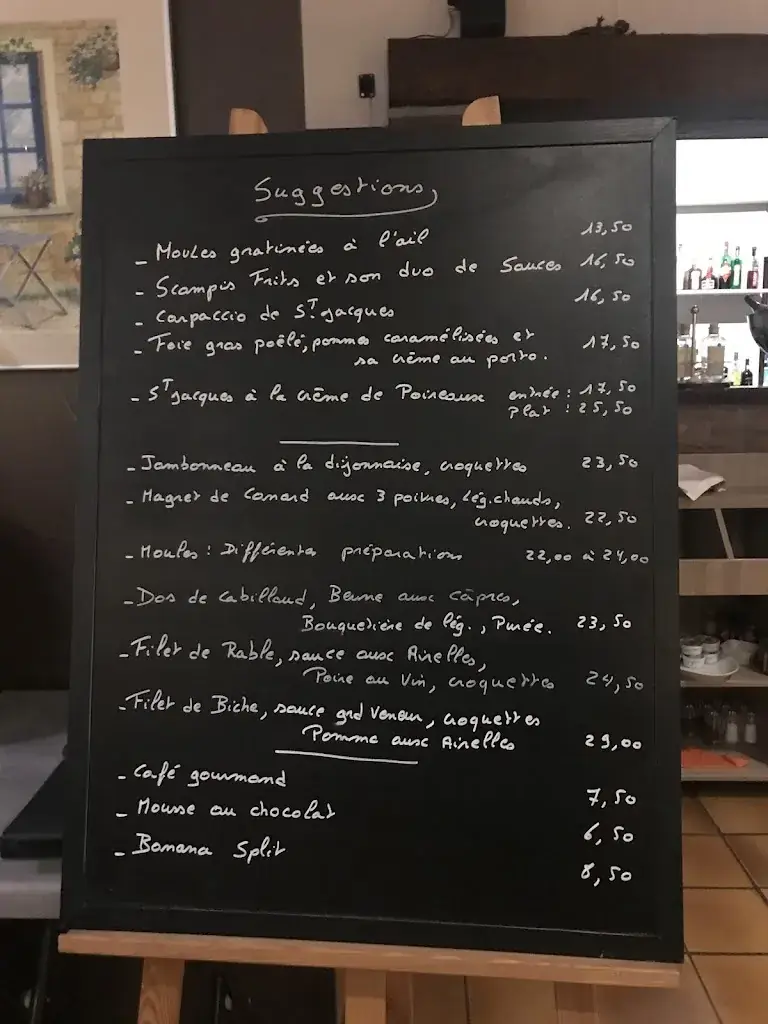 Suggestions
- Moules gratinées à l'ail 13,50
- Scampis Frits et son duo de Sauces 16,50
- Carpaccio de St Jacques 16,50
- Foie gras poêlé, pommes caramélisées et
sa crème au porto. 17,50
- St Jacques à la crème de Poireaux entrée : 17,50
Plat : 25,50
- Jambonneau à la dijonnaise, croquettes 23,50
- Magret de Canard aux 3 poivres, lég. chauds,
croquettes. 22,50
- Moules : Différentes préparations 22,00 à 24,00
- Dos de Cabillaud, Beurre aux câpres,
Bouquetière de lég., Purée. 23,50
- Filet de Rable, sauce aux Airelles,
Poire au Vin, croquettes 24,50
- Filet de Biche, sauce grd Veneur, croquettes
Pomme aux Airelles 29,00
- Café gourmand 7,50
- Mousse au chocolat 6,50
- Banana Split 8,50